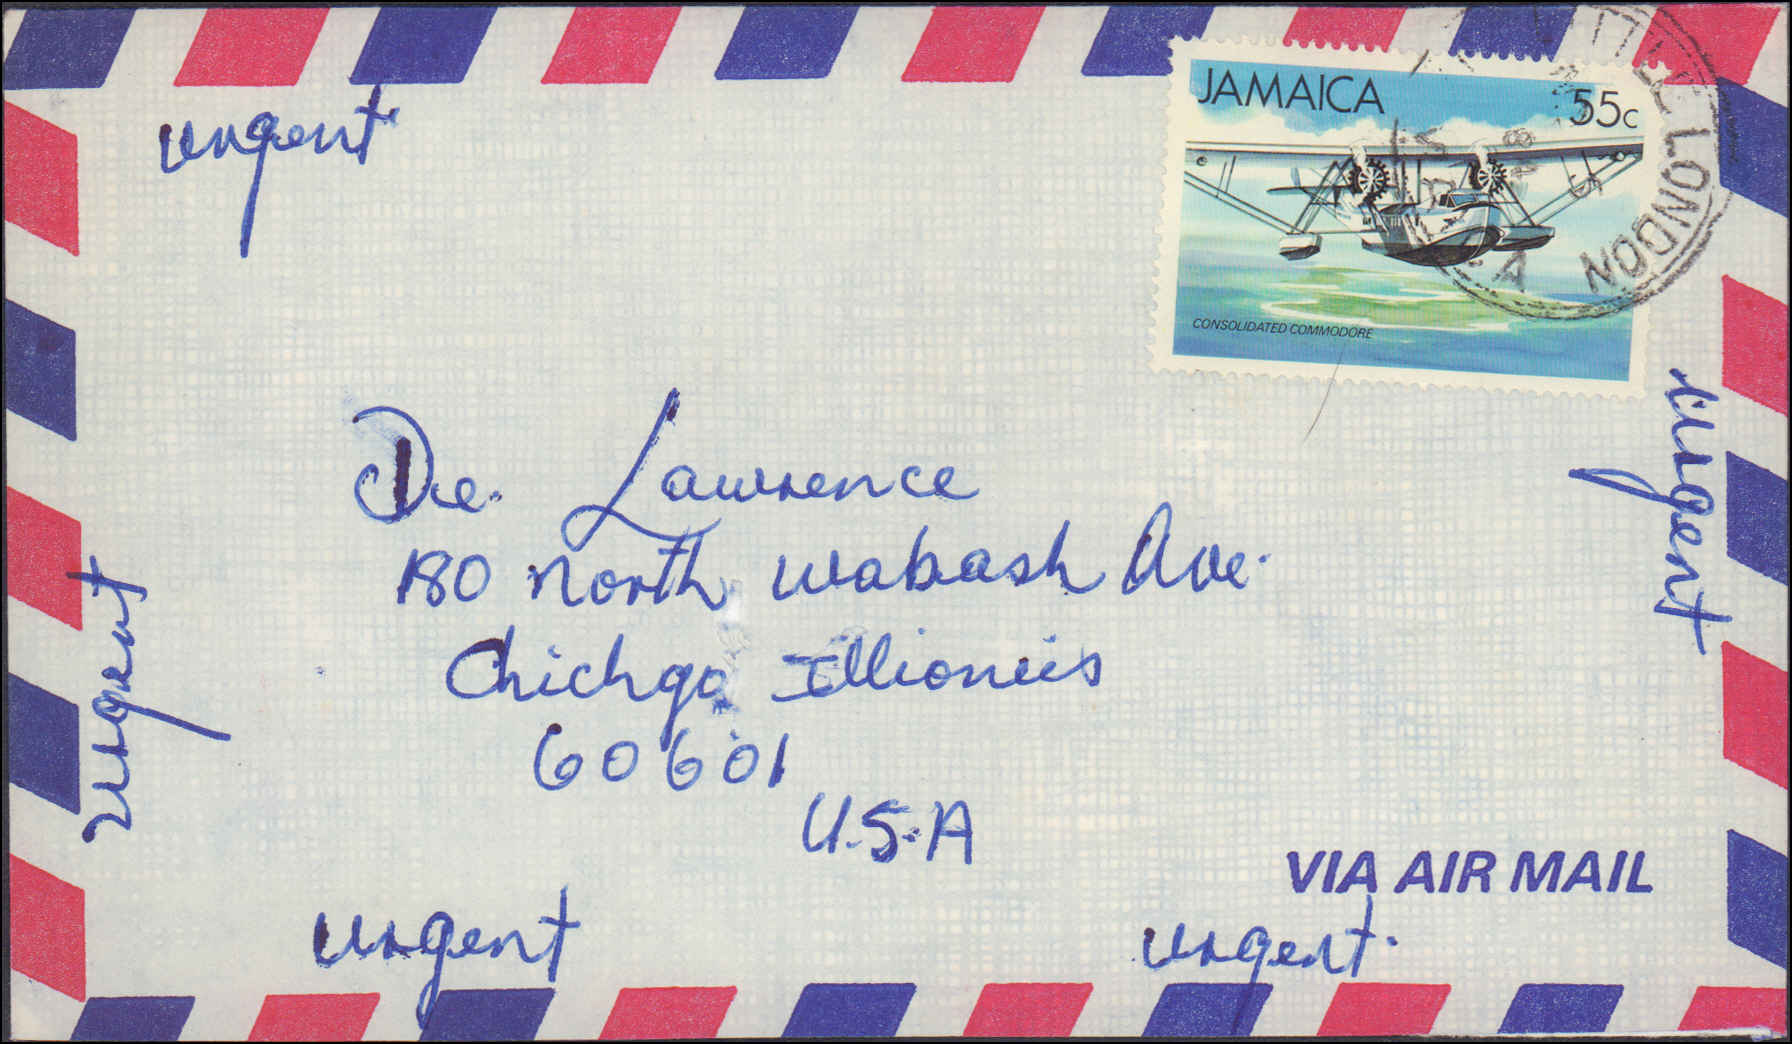 urgent
JAMAICA 55c
CONSOLIDATED COMMODORE
LITTLE LONDON
Dr. Lawrence
180 North Wabash Ave.
Chichgo Illioneis
60601
U.S.A
urgent
urgent
VIA AIR MAIL
urgent
urgent.